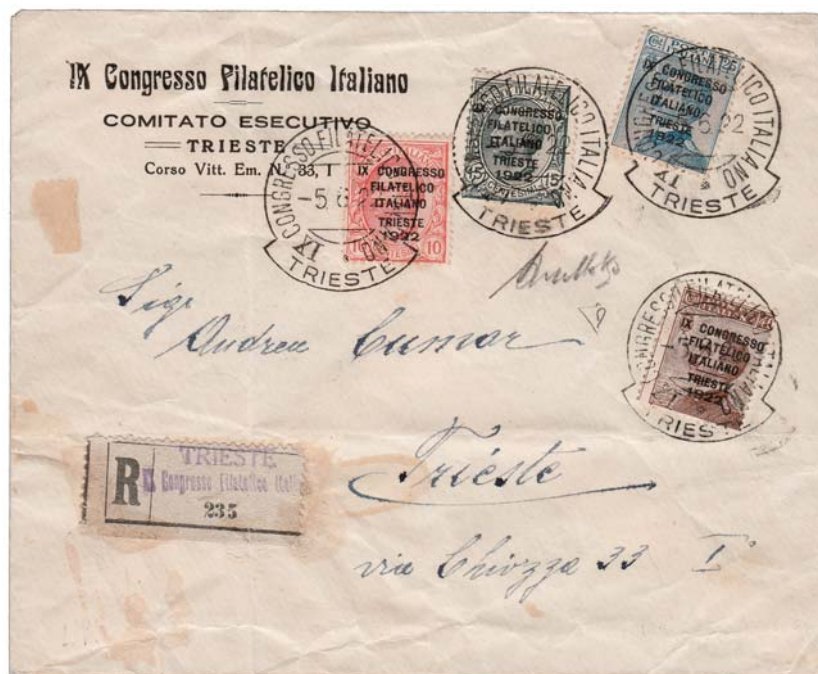 IX Congresso Filatelico Italiano
COMITATO ESECUTIVO
TRIESTE
Corso Vitt. Em. N. 33, I
IX CONGRESSO
FILATELICO
ITALIANO
TRIESTE
1922
10
IX CONGRESSO FILATELICO ITALIANO
-5.6.22
TRIESTE
IX CONGRESSO
FILATELICO
ITALIANO
TRIESTE
1922
15 CENTESIMI 15
IX CONGRESSO FILATELICO ITALIANO
TRIESTE
IX CONGRESSO
FILATELICO
ITALIANO
TRIESTE
1922
25
IX CONGRESSO FILATELICO ITALIANO
TRIESTE
IX CONGRESSO
FILATELICO
ITALIANO
TRIESTE
1922
IX CONGRESSO FILATELICO ITALIANO
TRIESTE
Sigr
Andrea Cumar
Trieste
via Chiozza 33 I°
R
TRIESTE
IX Congresso Filatelico Ital
235